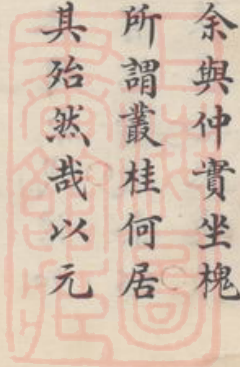 余與仲實坐槐
所謂叢桂何居
其殆然哉以元